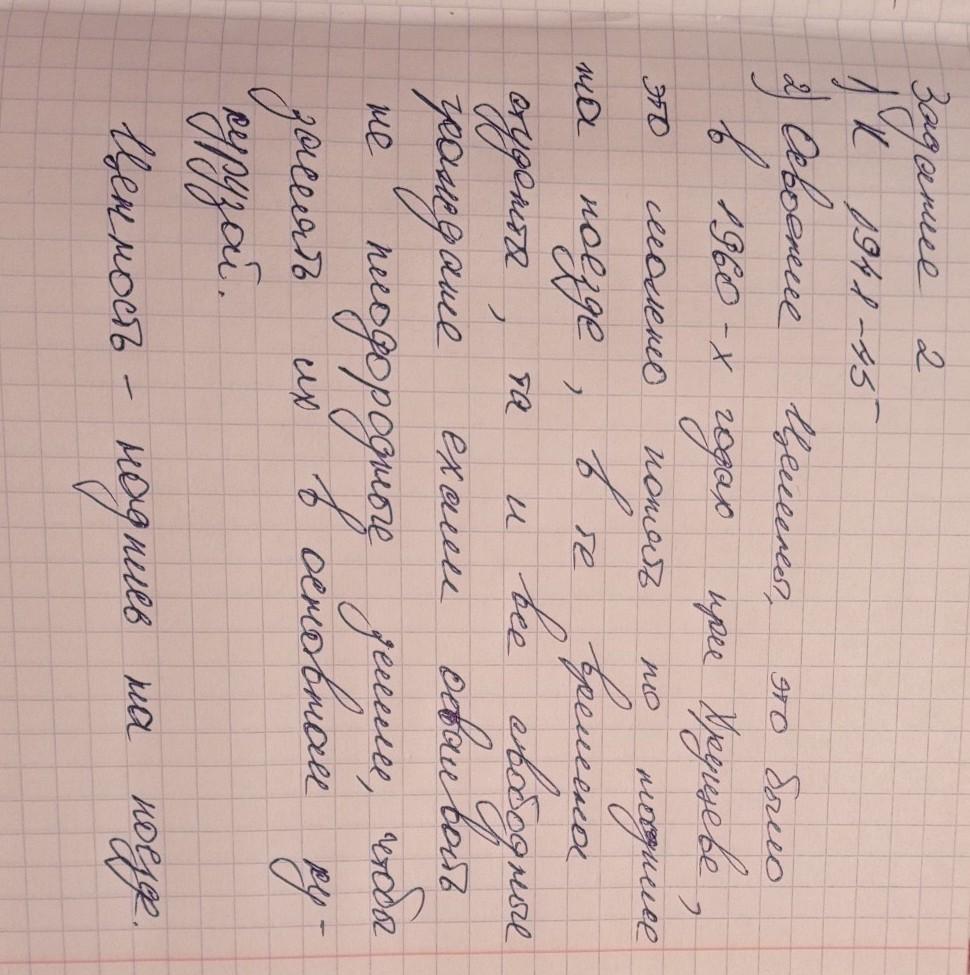 Задание 2
1) К 1941-45
2) Освоение Целины, это было
в 1960-х годах при Хрущеве,
это можно понять по надписе
на поезде, в те времена
студенты, та и все свободные
граждане ехали осваивать
не плодородные земли, чтобы
засеять их в основное ку-
курузой.
Ценность - надпись на поезде.